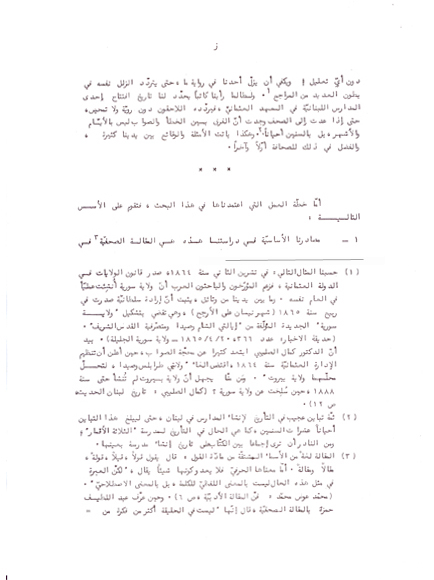 ز
دون أيّ تعليل ! ويكفي أن يزلّ أحدنا في رواية ما ، حتى يتردّد الزلل نفسه في
بطون العديد من المراجع ١. ولطالما رأينا كاتباً يحدّد لنا تاريخ افتتاح إحدى
المدارس اللبنانية في العهد العثماني ، فيردّده اللاحقون دون رويّة ولا تمحيص ،
حتى إذا عدت إلى الصحف وجدت أنّ الفرق بين الخطأ والصواب ليس بالأيّام
والأشهر ، بل بالسنين أحياناً ٢. وهكذا باتت الأمثلة والوقائع بين يدينا كثيرة ،
والفضل في ذلك للصحافة أوّلاً وآخراً .
* * *
أمّا خطّة العمل التي اعتمدناها في هذا البحث ، فتقوم على الأسس
التاليـــة :
١ – مصادرنا الأساسيّة في دراستنا هذه هي المقالة الصحفيّة ٣ في
(١) حسبنا المثال التالي : في تشرين الثاني سنة ١٨٦٤ صدر قانون الولايات في
الدولة العثمانية ، فزعم المؤرّخون والباحثون العرب أنّ ولاية سورية أُنشئت
في العام نفسه . وما بين يدينا من وثائق ، يثبت أنّ إرادة سلطانيّة صدرت في
ربيع سنة ١٨٦٥ (شهر نيسان على الأرجح) ، وهي تقضي بتشكيل " ولايـــة
سورية " الجديدة المؤلّفة من " إيالتي الشام وصيدا ومتصرفية القدس الشريف".
(حديقة الأخبار، عدد ٣٦٦ ، ١٨٦٥/٤/٢٠ – ولاية سورية الجليلة) . بيد
أنّ الدكتور كمال الصليبي ابتعد كثيراً عن محجّة الصواب ، حين أعلن أن تنظيم
الإدارة العثمانيّة سنة ١٨٦٤ ، اقتضى " ولايتي طرابلس وصيدا ، لتحـــل
محلّهما ولاية بيروت" . ومن منّا يجهل أنّ ولاية بيروت لم تُنشأ حتى سنة
١٨٨٨ ، حين سُلخت عن ولاية سورية ؟ (كمال الصليبي ، تاريخ لبنان الحديث ،
ص ١٢) .
(٢) ثمّة تباين عجيب في التأريخ لإنشاء المدارس في لبنان ، حتى ليبلغ هذا التباين
أحياناً عشرات السنين ، كما هي الحال في التأريخ لمدرسة " الثلاثة الأقمار" ،
ومن النادر أن ترى إجماعاً بين الكتّاب على تاريخ إنشاء مدرسة بعينها .
(٣) المقالة لغةً من الأسماء المشتقّة من مادّة القول ، قال يقول قولاً ، وقيلاً ، وقولةً ،
مقالاً ومقالةً . أمّا معناها الحرفيّ فلا يعدو كونها شيئاً يقال ، " لكنّ العبرة
في مثل هذه الحال ليست بالمعنى اللفظيّ للكلمة ، بل بالمعنى الاصطلاحيّ" .
(محمّد عوض محمّد ، فنّ المقالة الأدبيّة ، ص ٦) . وحين عرّف عبد اللطيف
حمزة المقالة الصحفيّة ، قال إنّها " ليست في الحقيقة أكثر من فكرة من =